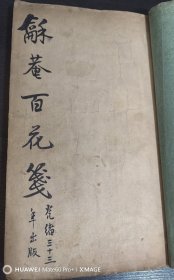 龢菴百花箋
光绪三十三
年出版
HUAWEI Mate60 Pro+ | XMAGE